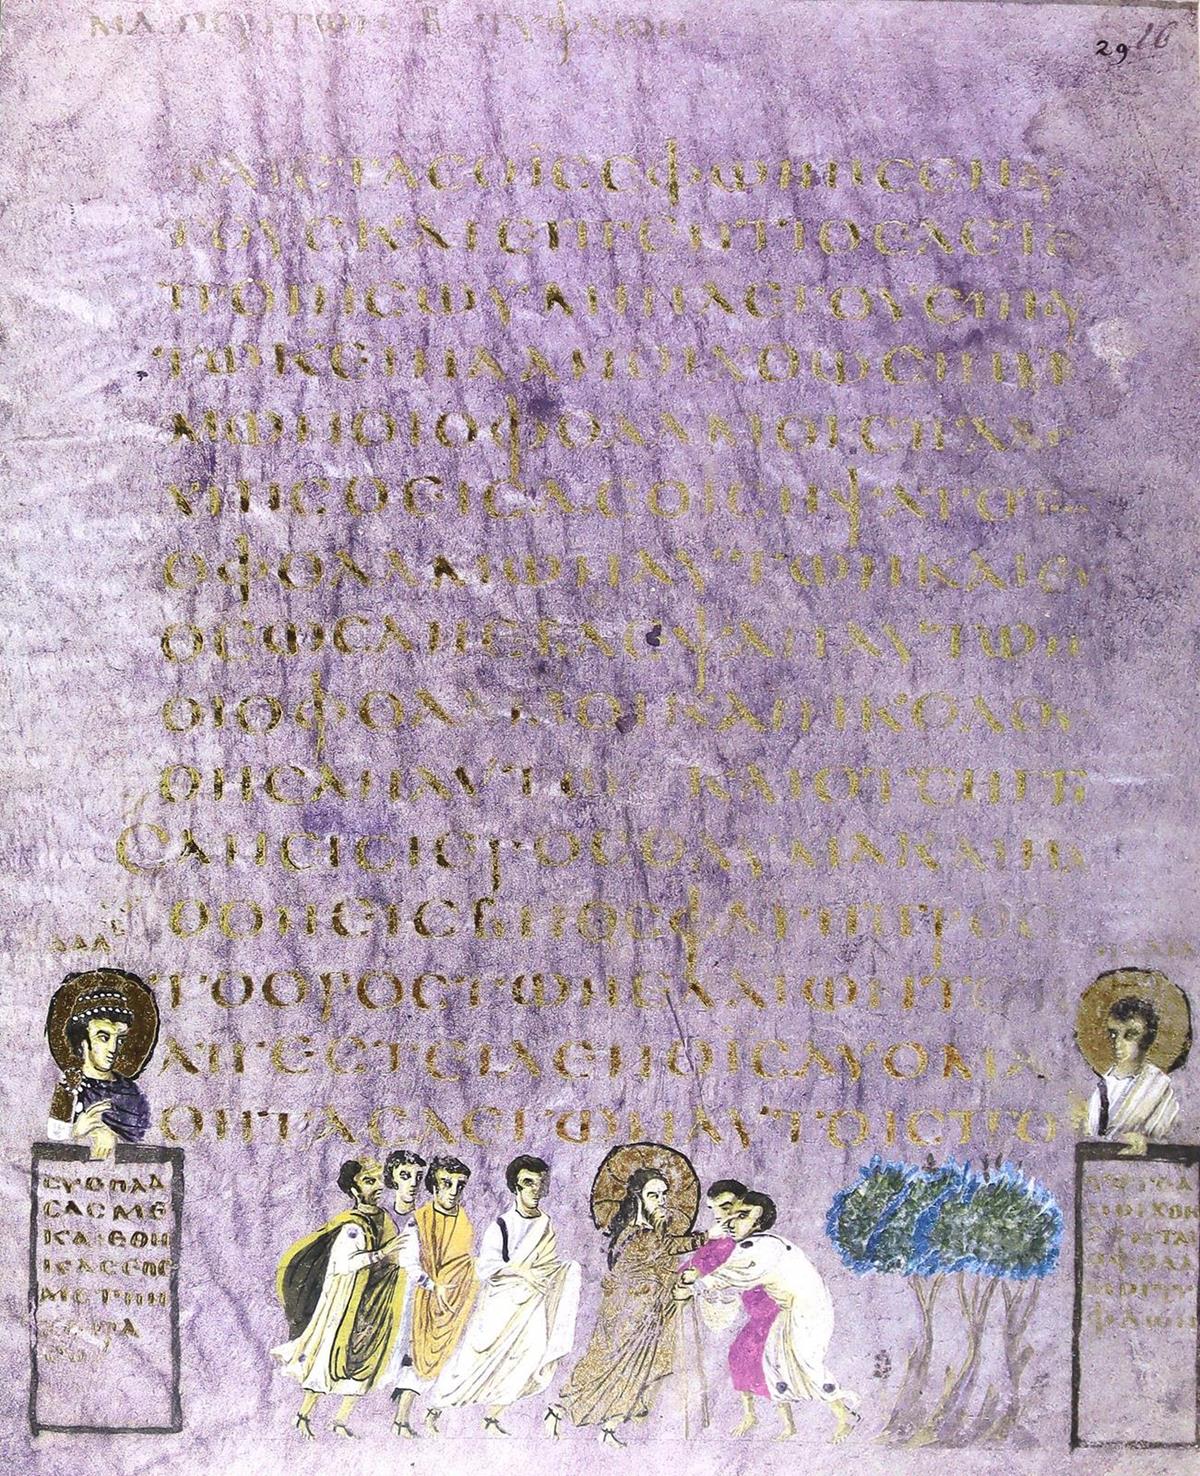 ΠΕΡΙ ΤΩΝ Β ΤΥΦΛΩΝ
29 16
ΚΑΙ ϹΤΑϹ Ο ΙϹ ΕΦΩΝΗϹΕΝ ΑΥ
ΤΟΥϹ ΚΑΙ ΕΙΠΕΝ ΤΙ ΘΕΛΕΤΕ
ΠΟΙΗϹΩ ΥΜΙΝ ΛΕΓΟΥϹΙΝ ΑΥ
ΤΩ ΚΕ ΙΝΑ ΑΝΟΙΧΘΩϹΙΝ Η
ΜΩΝ ΟΙ ΟΦΘΑΛΜΟΙ ϹΠΛΑ
ΧΝΙϹΘΕΙϹ ΔΕ Ο ΙϹ ΗΨΑΤΟ
ΟΦΘΑΛΜΩΝ ΑΥΤΩΝ ΚΑΙ ΕΥ
ΘΕΩϹ ΑΝΕΒΛΕΨΑΝ ΑΥΤΩΝ
ΟΙ ΟΦΘΑΛΜΟΙ ΚΑΙ ΗΚΟΛΟΥ
ΘΗϹΑΝ ΑΥΤΩ ΚΑΙ ΟΤΕ ΗΓΓΙ
ϹΑΝ ΕΙϹ ΙΕΡΟϹΟΛΥΜΑ ΚΑΙ ΗΛ
ΘΟΝ ΕΙϹ ΒΗΘϹΦΑΓΗ ΠΡΟϹ
ΤΟ ΟΡΟϹ ΤΩΝ ΕΛΑΙΩΝ ΤΟΤΕ
ΑΠΕϹΤΕΙΛΕΝ Ο ΙϹ ΔΥΟ ΜΑ
ΘΗΤΑϹ ΛΕΓΩΝ ΑΥΤΟΙϹ ΠΟ
ΔΑΔ
ϹΥ ΕΠΛΑ
ϹΑϹ ΜΕ
ΚΑΙ ΕΘΗ
ΚΑϹ ΕΠ Ε
ΜΕ ΤΗΝ
ΧΕΙΡΑ
ϹΟΥ
ΤΟΤΕ Α
ΝΟΙΧΘΗ
ϹΟΝΤΑΙ
ΟΦΘΑΛ
ΜΟΙ ΤΥ
ΦΛΩΝ